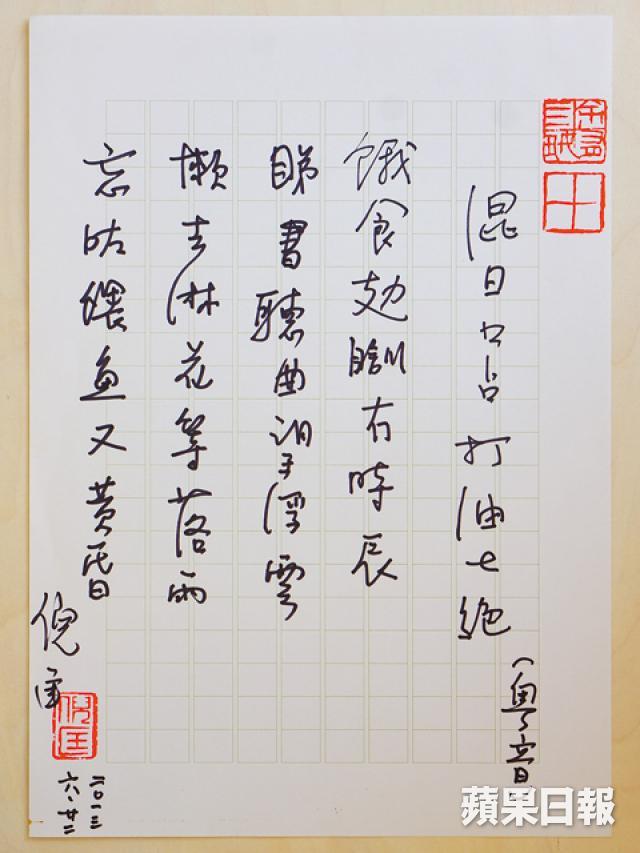 混日口占打油七絕
(粵音)
餓食攰瞓冇時辰
睇書聽曲望浮雲
懶去淋花等落雨
忘咗餵魚又黃昏
倪匡
倪匡
二〇一三
六、廿二
蘋果日報